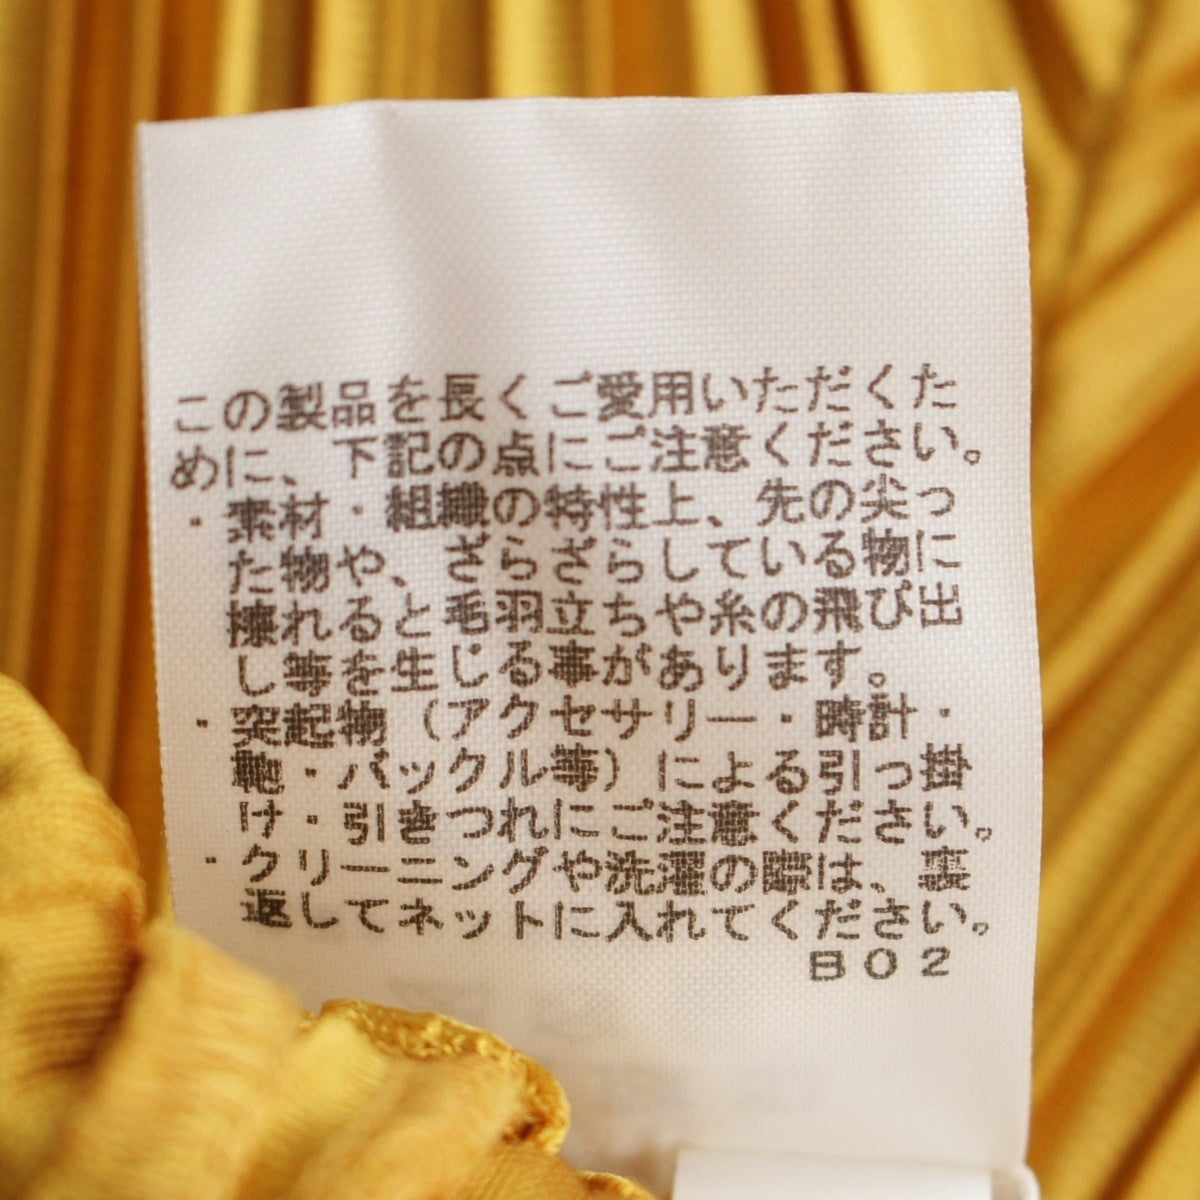 この製品を長くご愛用いただくた
めに、下記の点にご注意ください。
・素材・組織の特性上、先の尖っ
た物や、ざらざらしている物に
擦れると毛羽立ちや糸の飛び出
し等を生じる事があります。
・突起物（アクセサリー・時計・
靴・バックル等）による引っ掛
け・引きつれにご注意ください。
・クリーニングや洗濯の際は、裏
返してネットに入れてください。
B02